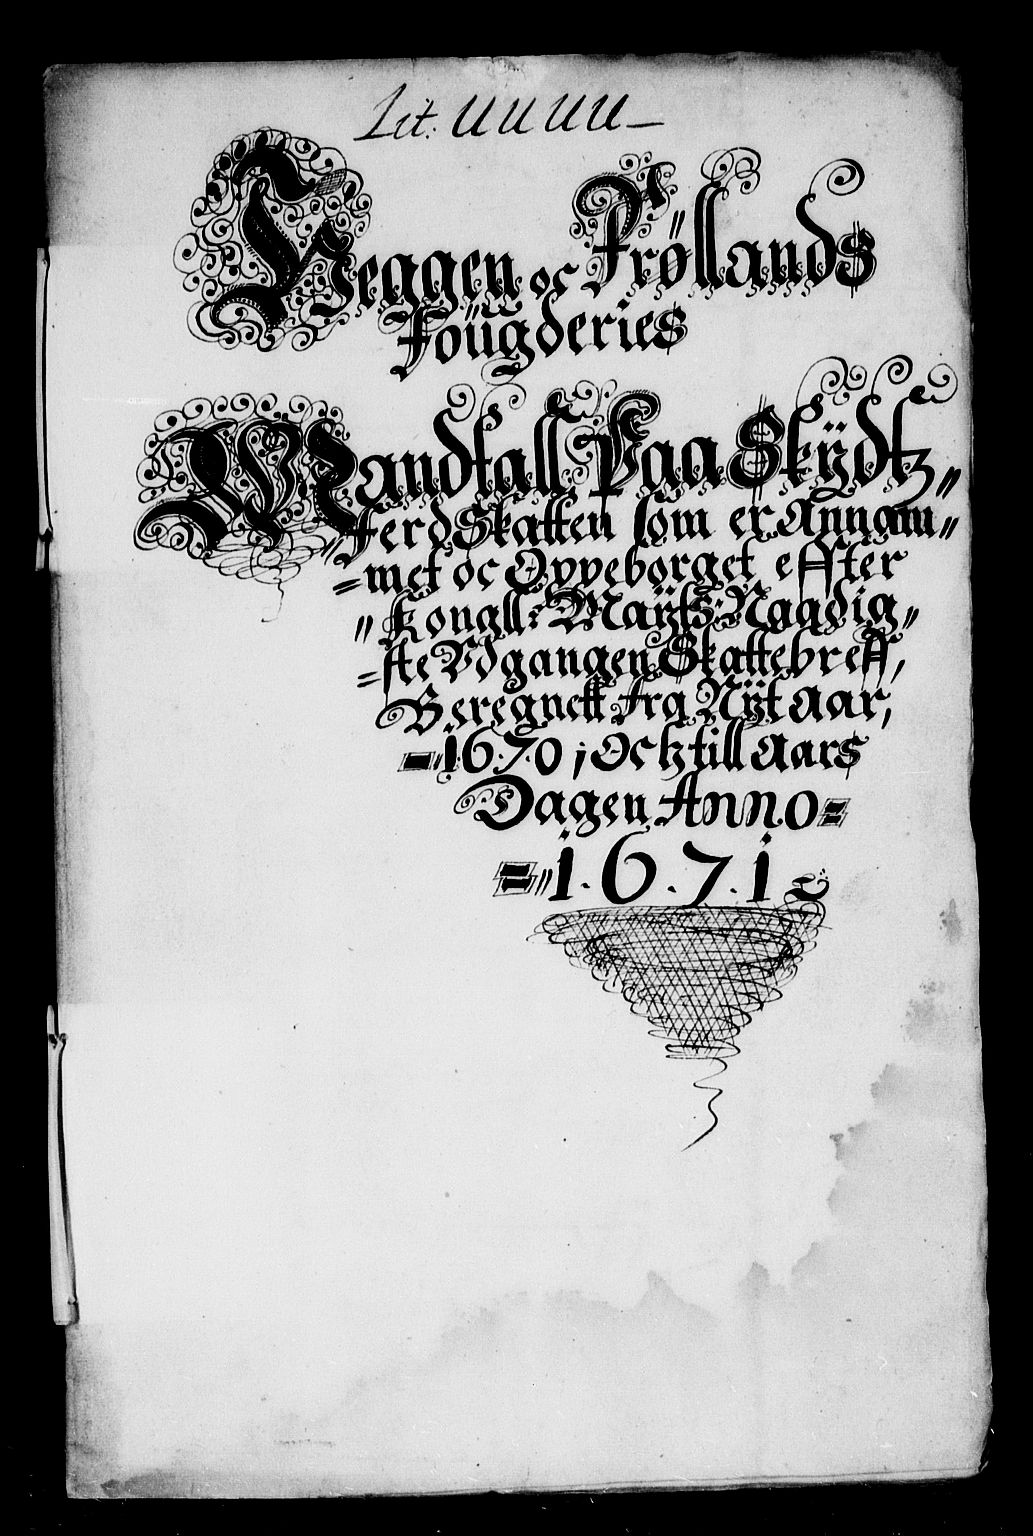 Lit: UUUU
Veggen oc Frøllands
Foügderies
Mandtall Paa Skÿdtz„
„ferd Skatten som er Annam„
=met oc Oppeborget effter
„Kongll: Maÿtz: Naadig„
=ste Vdgangen Skattebreff,
Beregnett fra Nÿt Aar,
=„1670; Och till Aars
Dagen Anno=
=„1.6.7.1